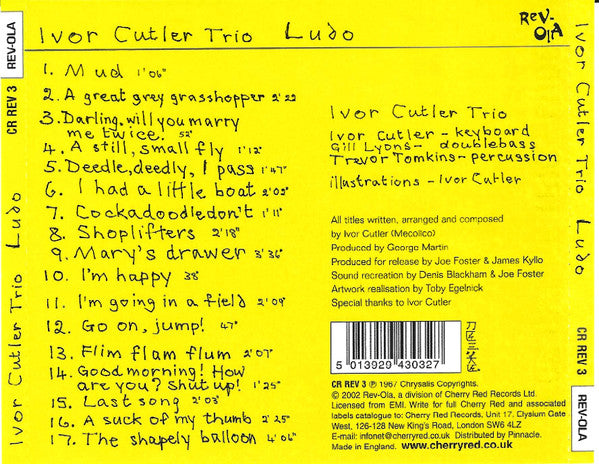 Ivor Cutler Trio Ludo
REV-OLA
1. Mud 1'06"
2. A great grey grasshopper 2'22
3. Darling, will you marry
me twice! 52"
4. A still, small fly 1'12"
5. Deedle, deedly, I pass 1'47"
6. I had a little boat 2'02"
7. Cockadoodledon't 1'11"
8. Shoplifters 2'18"
9. Mary's drawer 3'36"
10. I'm happy 38"
11. I'm going in a field 2'09"
12. Go on, jump! 47"
13. Flim flam flum 2'07"
14. Good morning! How
are you? Shut up! 1'25"
15. Last song 2'03"
16. A suck of my thumb 2'25"
17. The shapely balloon 4'06"
Ivor Cutler Trio
Ivor Cutler - keyboard
Gill Lyons - doublebass
Trevor Tomkins - percussion
illustrations - Ivor Cutler
All titles written, arranged and composed
by Ivor Cutler (Mecolico)
Produced by George Martin
Produced for release by Joe Foster & James Kyllo
Sound recreation by Denis Blackham & Joe Foster
Artwork realisation by Toby Egelnick
Special thanks to Ivor Cutler
5 013929 430327
CR REV 3 ℗ 1967 Chrysalis Copyrights.
© 2002 Rev-Ola, a division of Cherry Red Records Ltd.
Licensed from EMI. Write for full Cherry Red and associated
labels catalogue to: Cherry Red Records, Unit 17. Elysium Gate
West, 126-128 New King's Road, London SW6 4LZ
E-mail: infonet@cherryred.co.uk Distributed by Pinnacle.
Made in England. www.cherryred.co.uk
Ivor Cutler Trio Ludo
CR REV 3
REV-OLA
Ivor Cutler Trio Ludo
CR REV 3
REV-OLA